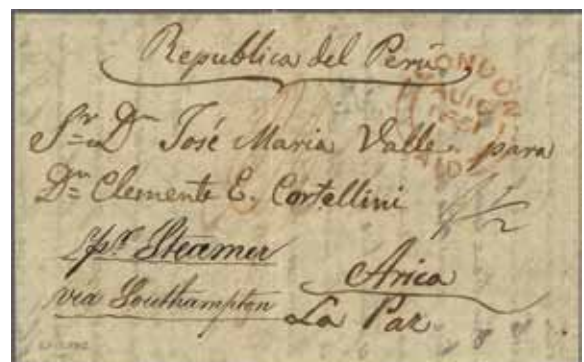 Republica del Perú
LONDON
1851
PAID
Sr. Dn. José Maria Valle. para
Dn. Clemente E. Cortellini
1/2
pr. Steamer
via Southampton
Arica
La Paz